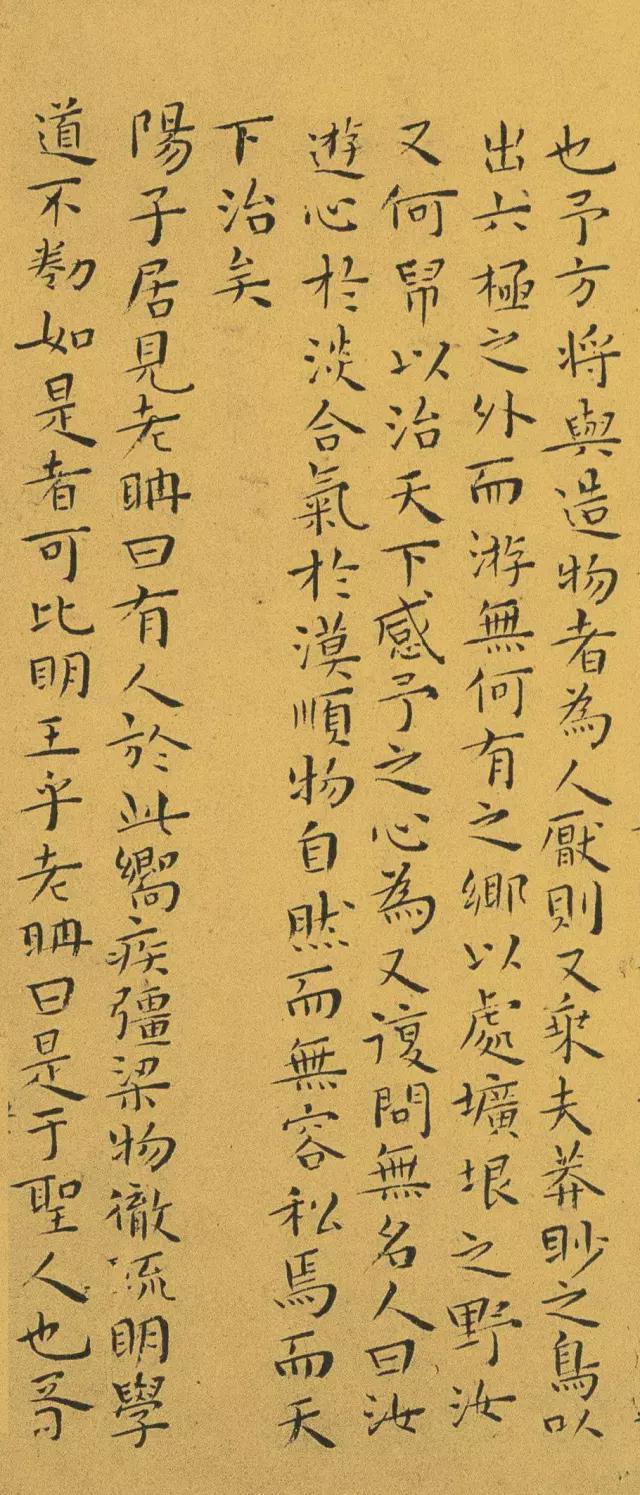 也予方将與造物者為人厭則又乗夫莽眇之鳥以
出六極之外而游無何有之鄉以處壙垠之野汝
又何帠以治天下感予之心為又復問無名人曰汝
遊心於淡合氣於漠順物自然而無容私焉而天
下治矣
陽子居見老聃曰有人於此嚮疾彊梁物徹流明學
道不勌如是者可比明王乎老聃曰是于聖人也胥